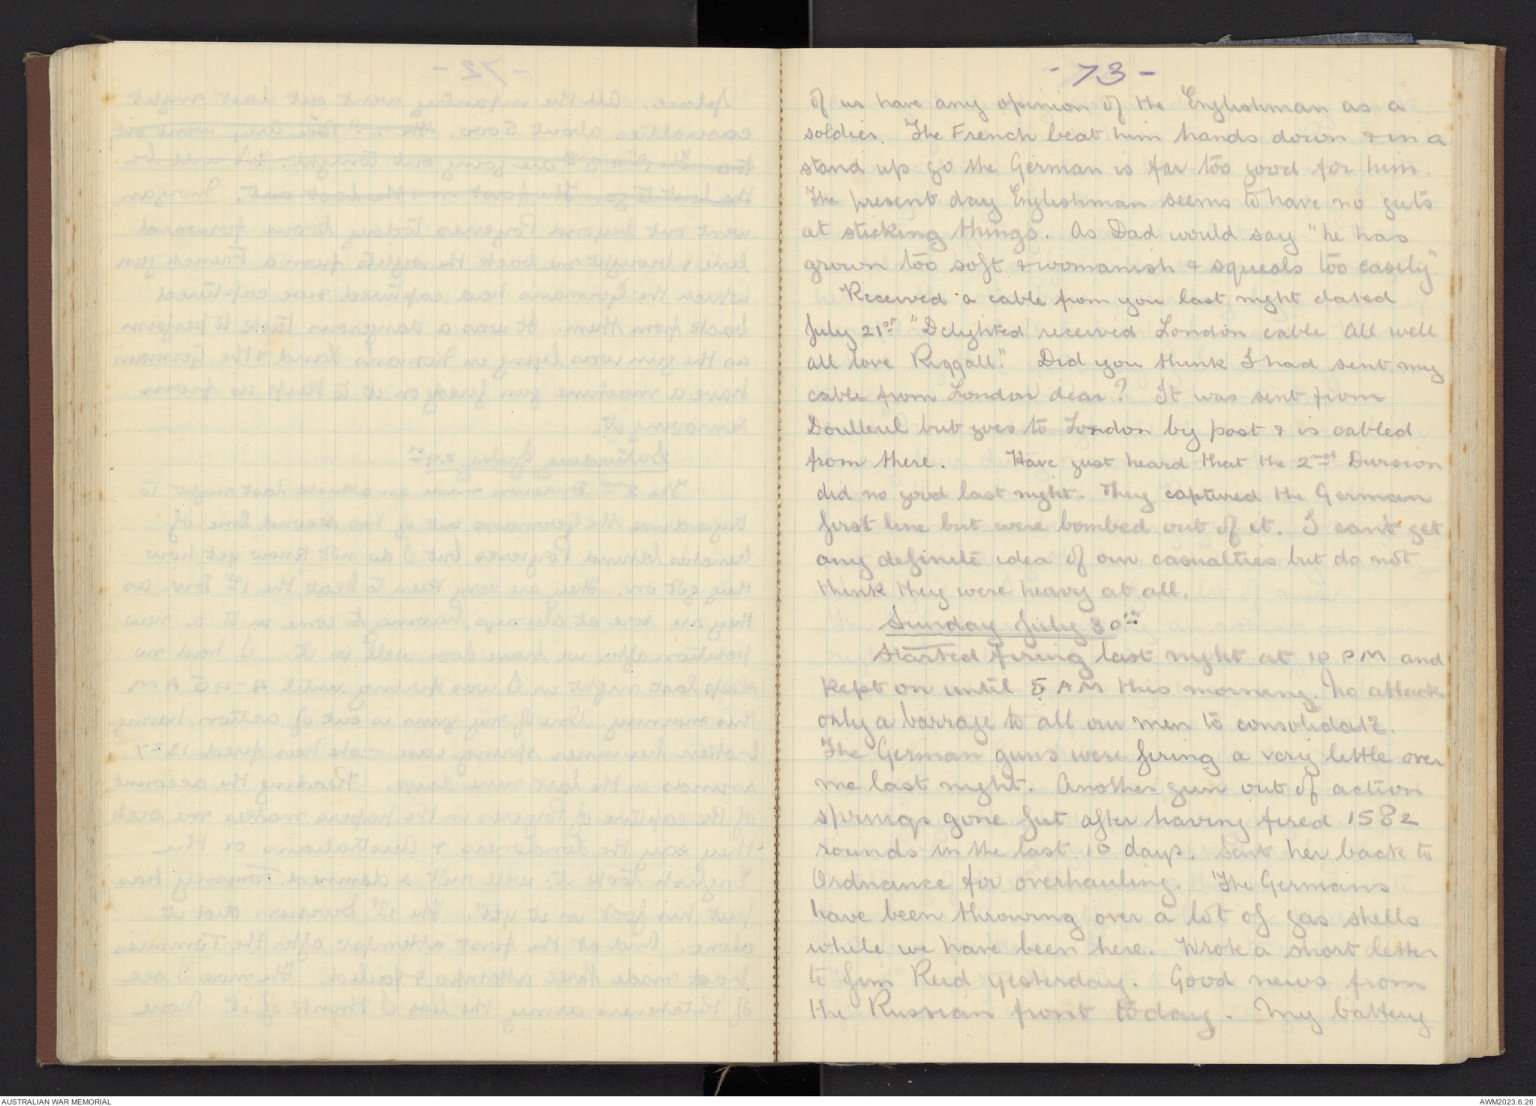 - 73 -
of us have any opinion of the Englishman as a
soldier. The French beat him hands down & in a
stand up go the German is far too good for him.
The present day Englishman seems to have no guts
at sticking things. As Dad would say "he has
grown too soft & womanish & squeals too easily".
Received a cable from you last night dated
July 21st "Delighted received London cable All well
all love Riggall". Did you think I had sent my
cable from London dear? It was sent from
Doulleul but goes to London by post & is cabled
from there. Have just heard that the 2nd Division
did no good last night. They captured the German
first line but were bombed out of it. I can't get
any definite idea of our casualties but do not
think they were heavy at all.
Sunday July 30th
Started firing last night at 10 PM and
kept on until 5 AM this morning. No attack
only a barrage to all our men to consolidate.
The German guns were firing a very little over
me last night. Another gun out of action
springs gone fut after having fired 1582
rounds in the last 10 days. Sent her back to
Ordnance for overhauling. The Germans
have been throwing over a lot of gas shells
while we have been here. Wrote a short letter
to Jim Reid yesterday. Good news from
the Russian front today. My battery
AUSTRALIAN WAR MEMORIAL
AWM2023.6.26